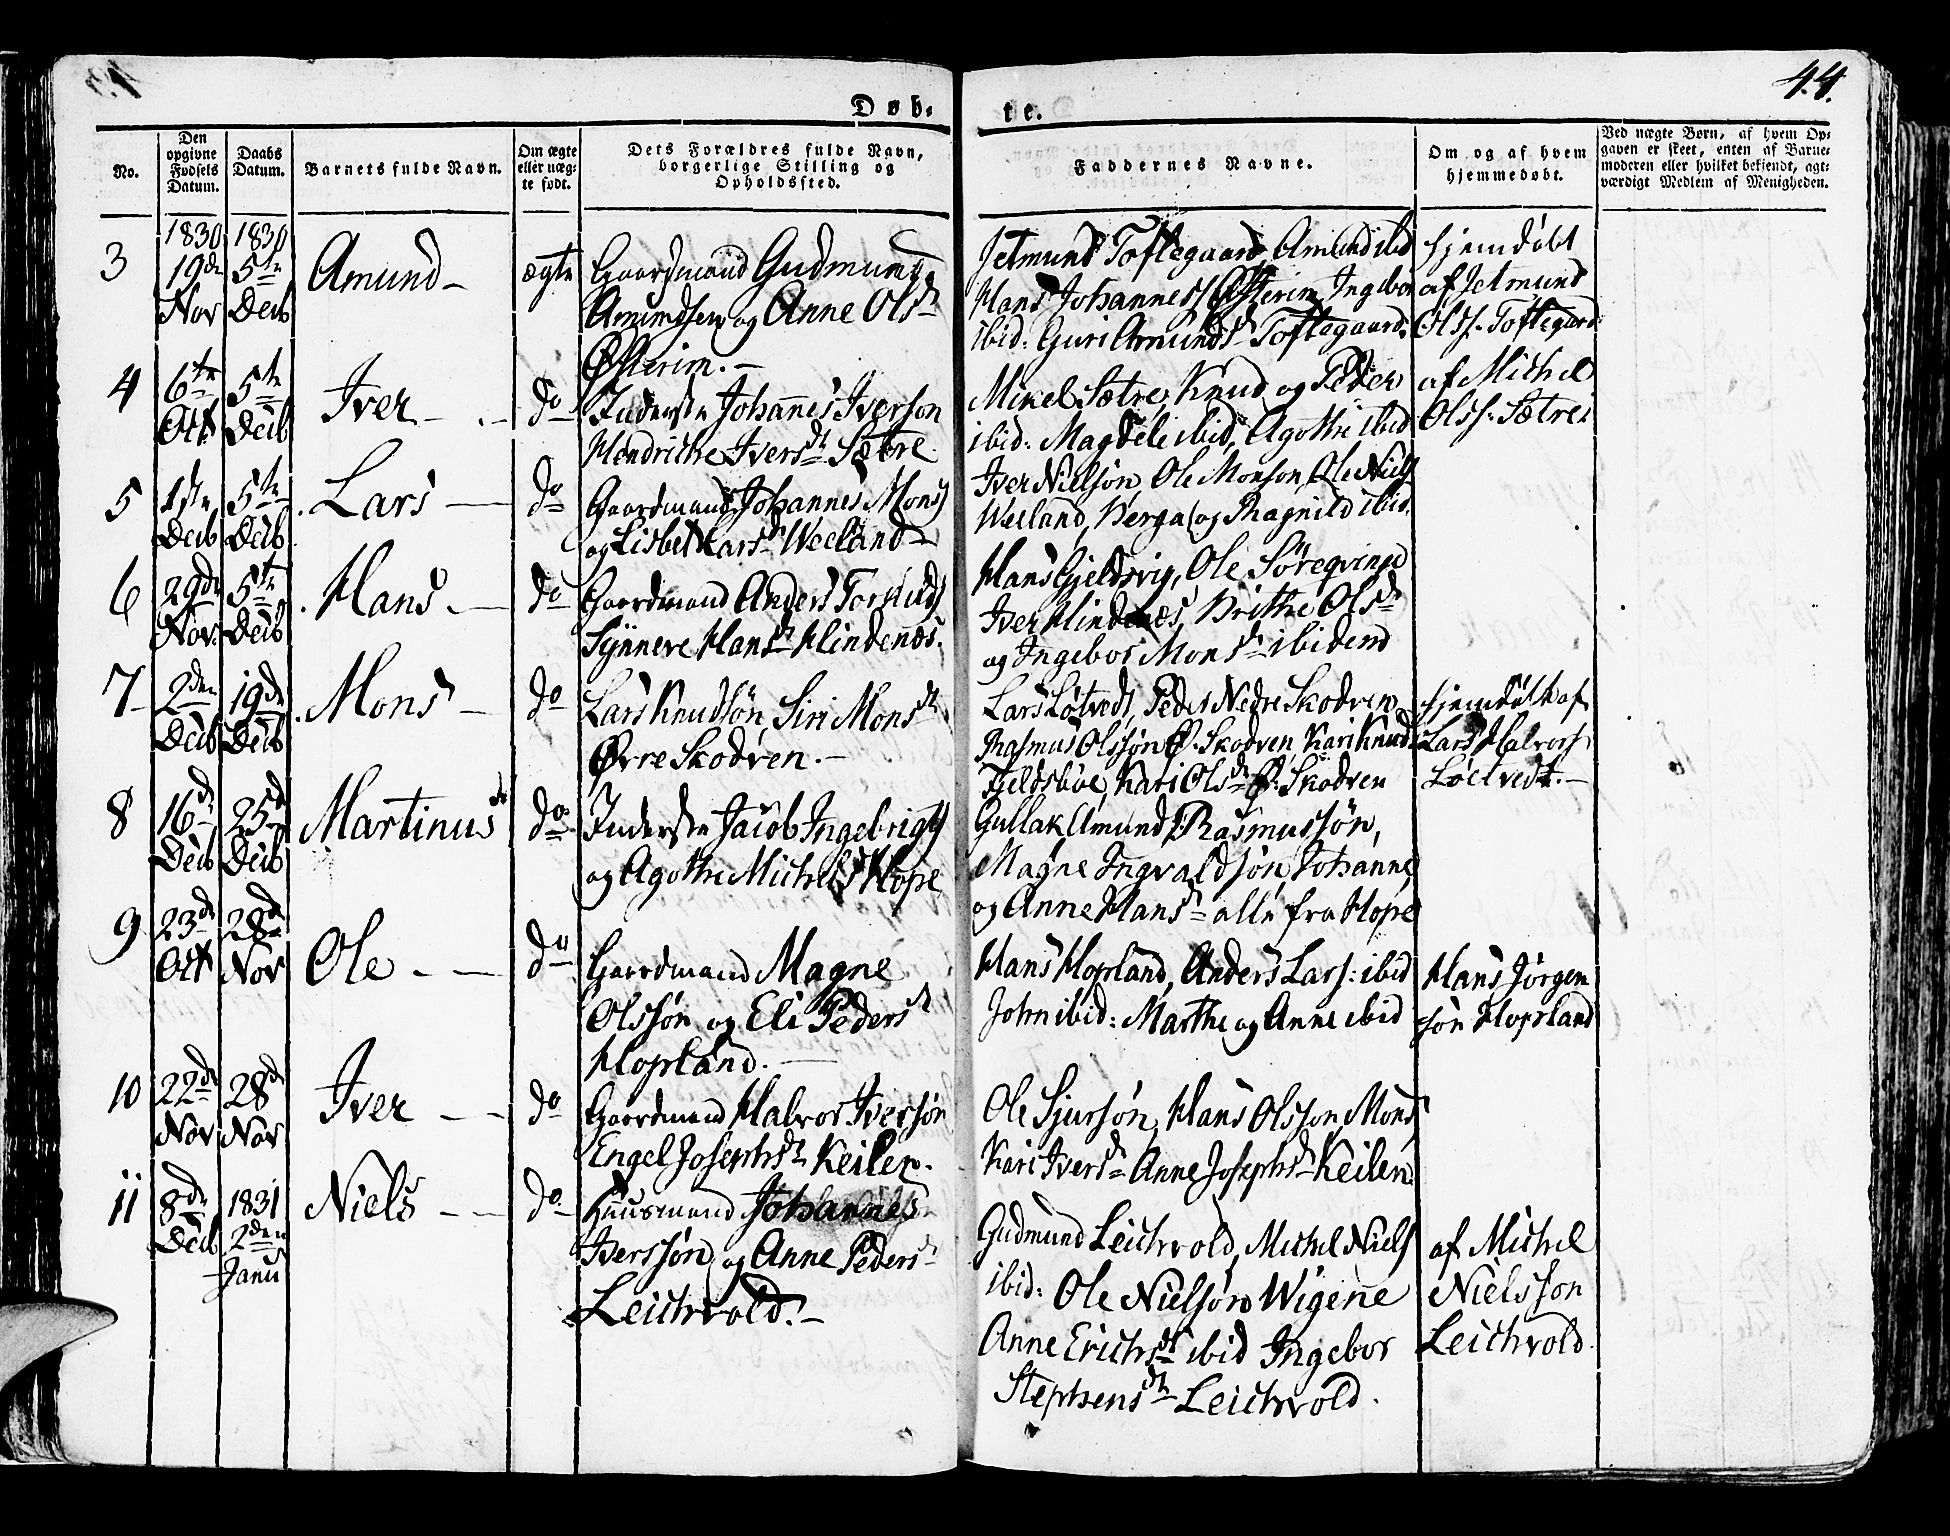 44.
Døb-
te.
No.
Den opgivne Fødsels Datum.
Daabs Datum.
Barnets fulde Navn.
Om ægte eller uægte født.
Dets Forældres fulde Navn, borgerlige Stilling og Opholdssted.
Faddernes Navne.
Om og af hvem hjemmedøbt.
Ved uægte Børn, af hvem Opgaven er skeet, enten af Barnemoderen eller hvilket bekjendt, agtværdigt Medlem af Menigheden.
3
1830 19de Nov
1830 5te Decb
Amund
ægte
Gaardmand Gudmund
Amundsen og Anne Olsd
Østerim.
Jetmund Toftegaard, Amund ibid
Hans Johanness Østerim Ingebor
ibid: Guri Amundsd Toftegaard.
hjemdøbt
af Jetmund
Olss. Toftegard
4
6te Oct
5te Decb
Iver
do
Inderste Johannes Iverson
Hendriche Iversd Sætre
Mikel Sætre, Knud og Peder
ibid: Magdeli ibid, Agothe ibid
af Michel
Olss. Sætrei
5
1ste Decb
5te Decb
Lars
do
Gaardmand Johannes Mons
og Lisbet Larsd Weeland
Iver Nielsøn, Ole Monson, Ole Niels
Weeland, Berga og Ragnild ibid.
6
29de Nov.
5te Decb
Hans
do
Gaardmand Anders Torkilds
Synneve Hansd Hindenæs.
Hans Gjeldsvig, Ole Søreqvinge
Iver Hindenæs, Brithe Olsd
og Ingebor Monsd ibidem
7
2den Decb
19de Decb
Mons
do
Lars Knudsøn, Siri Monsd
Øvre Skodven.
Lars Løtvedt, Peder Nedre Skodven
Rasmus Olssøn Ø. Skodven, Kari Knudsd
Fjeldsbøe, Kari Olsd Ø. Skodven
hjemdøbt af
Lars Halvors
Løetvedt.
8
16de Decb
25de Decb
Martinus
do
Inderste Jacob Ingebrigts
og Agothe Michelsd Hope
Gullak Amunds, Rasmussøn,
Magne Ingvaldsøn, Johanne
og Anne Hansd alle fra Hope
9
23de Oct
28de Nov
Ole
do
Gaardmand Magne
Olssøn og Eli Pedersd
Hopland.
Hans Hopland, Anders Lars: ibid
John ibid: Marthe og Anne ibid
Hans Jørgen
søn Hopland
10
22de Nov
28de Nov
Iver
do
Gaardmand Halvor Iversøn
Engel Josephsd Keilen.
Ole Sjursøn, Hans Olsson, Mons
Kari Iversd Anne Josephsd Keilen.
11
8de Decb
1831 2den Janu
Niels
do
Huusmand Johannes
Iverssøn og Anne Pedersd
Leichvold.
Gudmund Leichvold, Michel Niels
ibid: Ole Nielsøn Wigene
Anne Erichsd ibid Ingebor
Stephensd Leichvold.
af Michel
Nielsson
Leichvold.